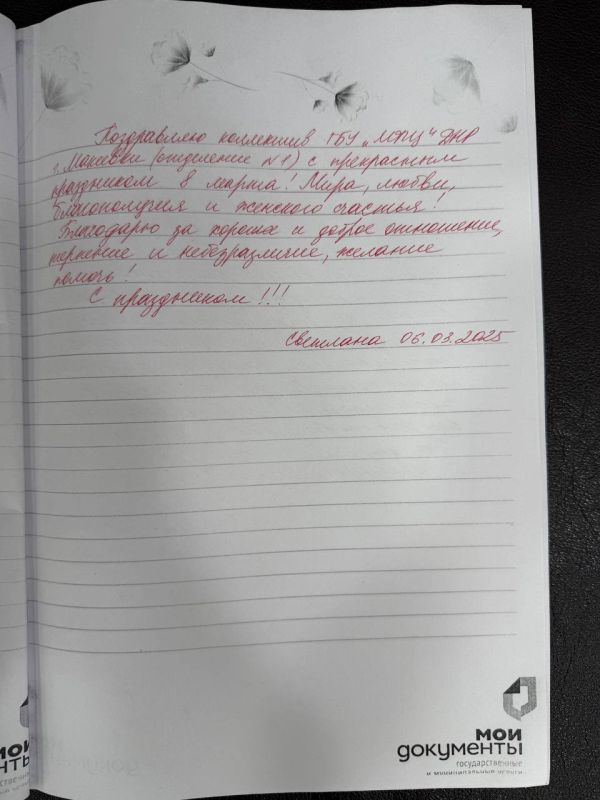 Поздравляю коллектив ГБУ „МФЦ“ ДНР
г. Макеевки (отделение №1) с прекрасным
праздником 8 марта! Мира, любви,
благополучия и женского счастья!
Благодарю за хорошее и доброе отношение,
терпение и небезразличие, желание
помочь!
С праздником!!!
Светлана 06.03.2025
мои
документы
государственные
и муниципальные услуги
мои
документы